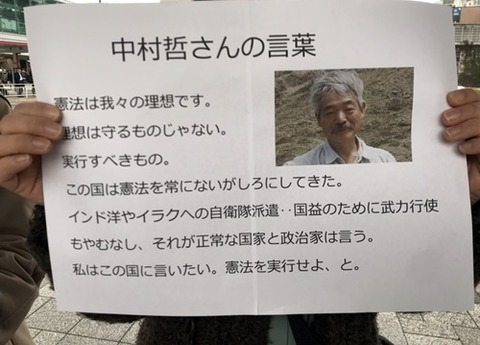 中村哲さんの言葉
憲法は我々の理想です。
理想は守るものじゃない。
実行すべきもの。
この国は憲法を常にないがしろにしてきた。
インド洋やイラクへの自衛隊派遣‥国益のために武力行使
もやむなし、それが正常な国家と政治家は言う。
私はこの国に言いたい。憲法を実行せよ、と。